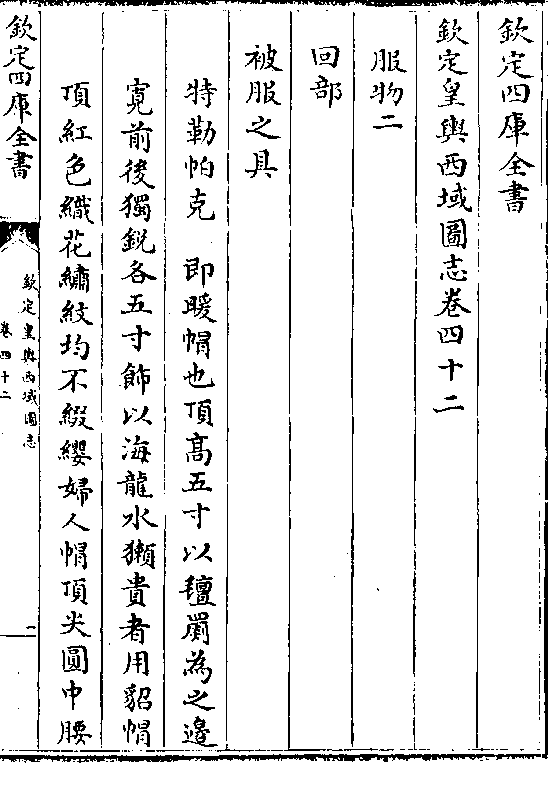 欽定四庫全書
欽定皇輿西域圖志卷四十二
服物二
回部
被服之具
特勒帕克　即暖帽也頂高五寸以氊罽為之邊
寛前後獨鋭各五寸飾以海龍水獺貴者用貂帽
頂紅色織花繡紋均不綴纓婦人帽頂尖圓中腰
欽定四庫全書
欽定皇輿西域圖志
卷四十二
一